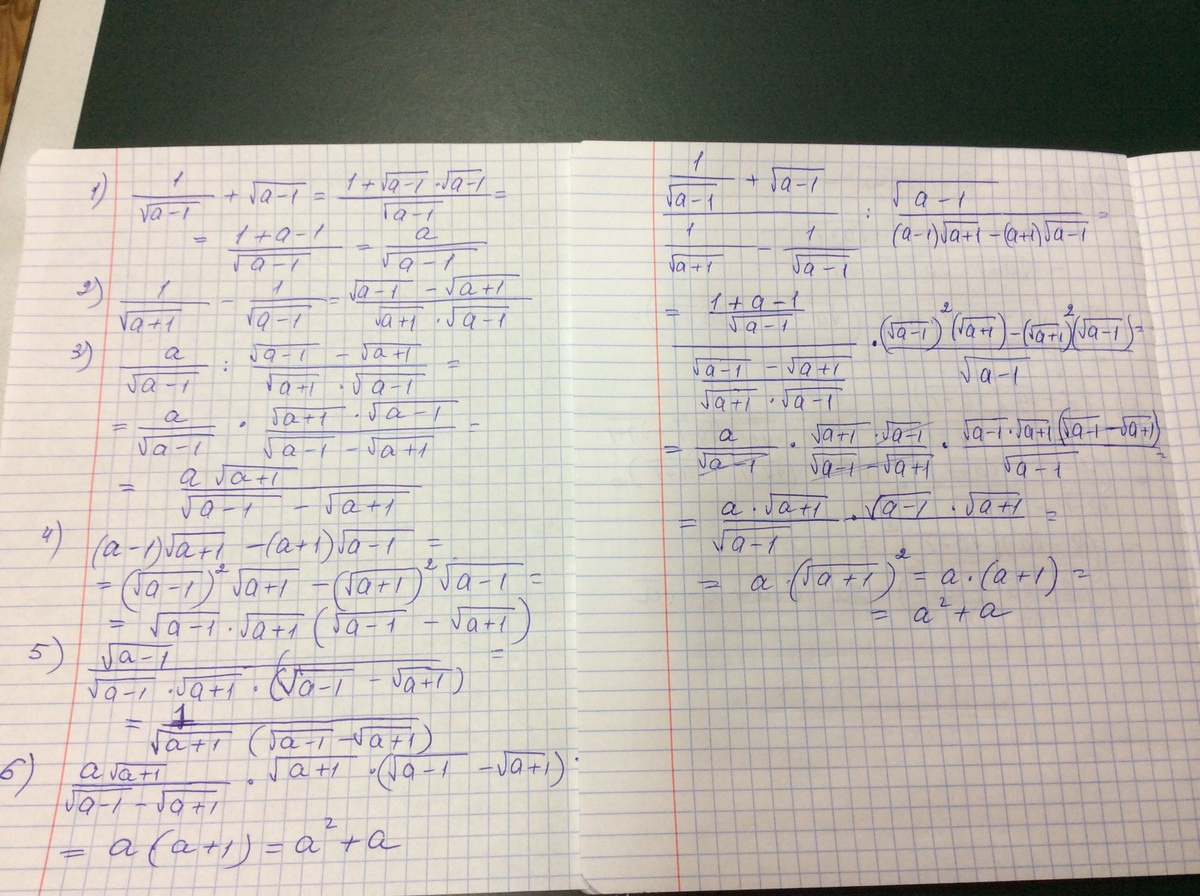 1) 1/√(a-1) + √(a-1) = (1+√(a-1)·√(a-1))/√(a-1) =
= (1+a-1)/√(a-1) = a/√(a-1)
2) 1/√(a+1) - 1/√(a-1) = (√(a-1) - √(a+1))/(√(a+1)·√(a-1))
3) a/√(a-1) : (√(a-1) - √(a+1))/(√(a+1)·√(a-1)) =
= a/√(a-1) · (√(a+1)·√(a-1))/(√(a-1) - √(a+1)) =
= a√(a+1)/(√(a-1) - √(a+1))
4) (a-1)√(a+1) - (a+1)√(a-1) =
= (√(a-1))²√(a+1) - (√(a+1))²√(a-1) =
= √(a-1)·√(a+1)(√(a-1) - √(a+1))
5) √(a-1)/(√(a-1)·√(a+1)·(√(a-1) - √(a+1))) =
= 1/(√(a+1)(√(a-1) - √(a+1)))
6) a√(a+1)/(√(a-1) - √(a+1)) · √(a+1)·(√(a-1) - √(a+1))
= a(a+1) = a²+a
(1/√(a-1) + √(a-1))/(1/√(a+1) - 1/√(a-1)) : √(a-1)/((a-1)√(a+1) - (a+1)√(a-1)) =
= ((1+a-1)/√(a-1))/((√(a-1) - √(a+1))/(√(a+1)·√(a-1))) · ((√(a-1))²(√(a+1)) - (√(a+1))²(√(a-1)))/√(a-1) =
= a/√(a-1) · (√(a+1)·√(a-1))/(√(a-1) - √(a+1)) · (√(a-1)·√(a+1)(√(a-1) - √(a+1)))/√(a-1) =
= (a·√(a+1))/√(a-1) · √(a-1)·√(a+1) =
= a·(√(a+1))² = a·(a+1) =
= a²+a